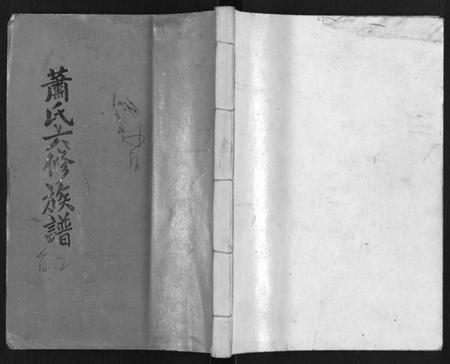 蕭氏六修族譜
首2